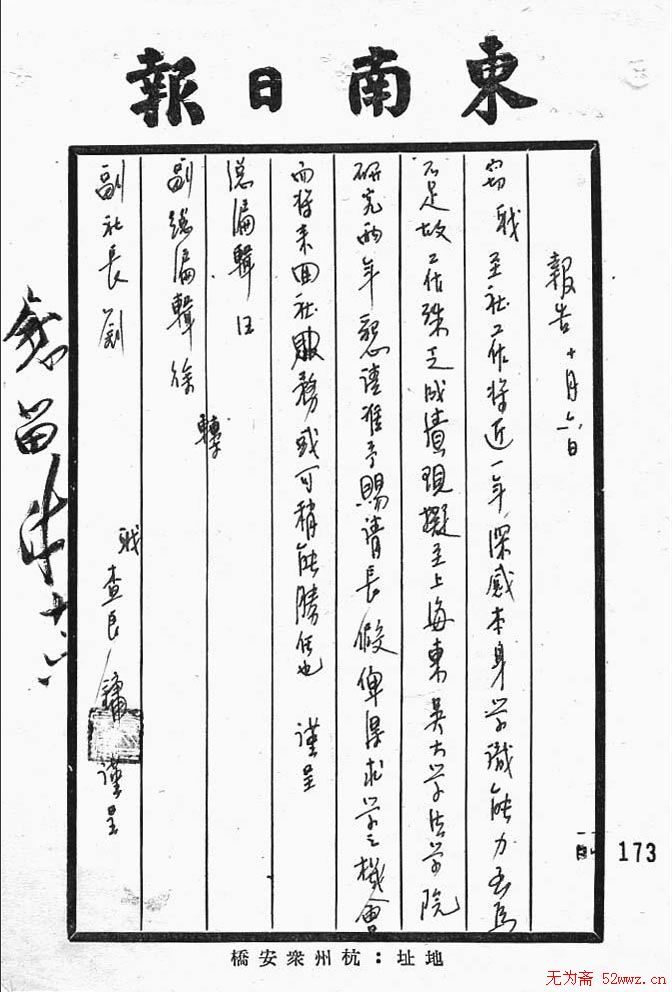 東南日報
報告 十月六日
窃職至社工作将近一年深感本身学識能力至為
不足故工作殊乏成績現擬至上海東吴大学法学院
研究两年懇請准予賜請長假俾得求学之機會
而将来回社服務或可稍能勝任也 謹呈
总编輯汪
副總编輯徐 轉
副社長劉
職查良鏞謹呈
173
地址：杭州衆安橋
无为斋 52wwz.cn